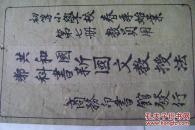 初等小學校 春季始業
第七册 教員用
共和國
教科書
新國文教授法
商務印書館發行